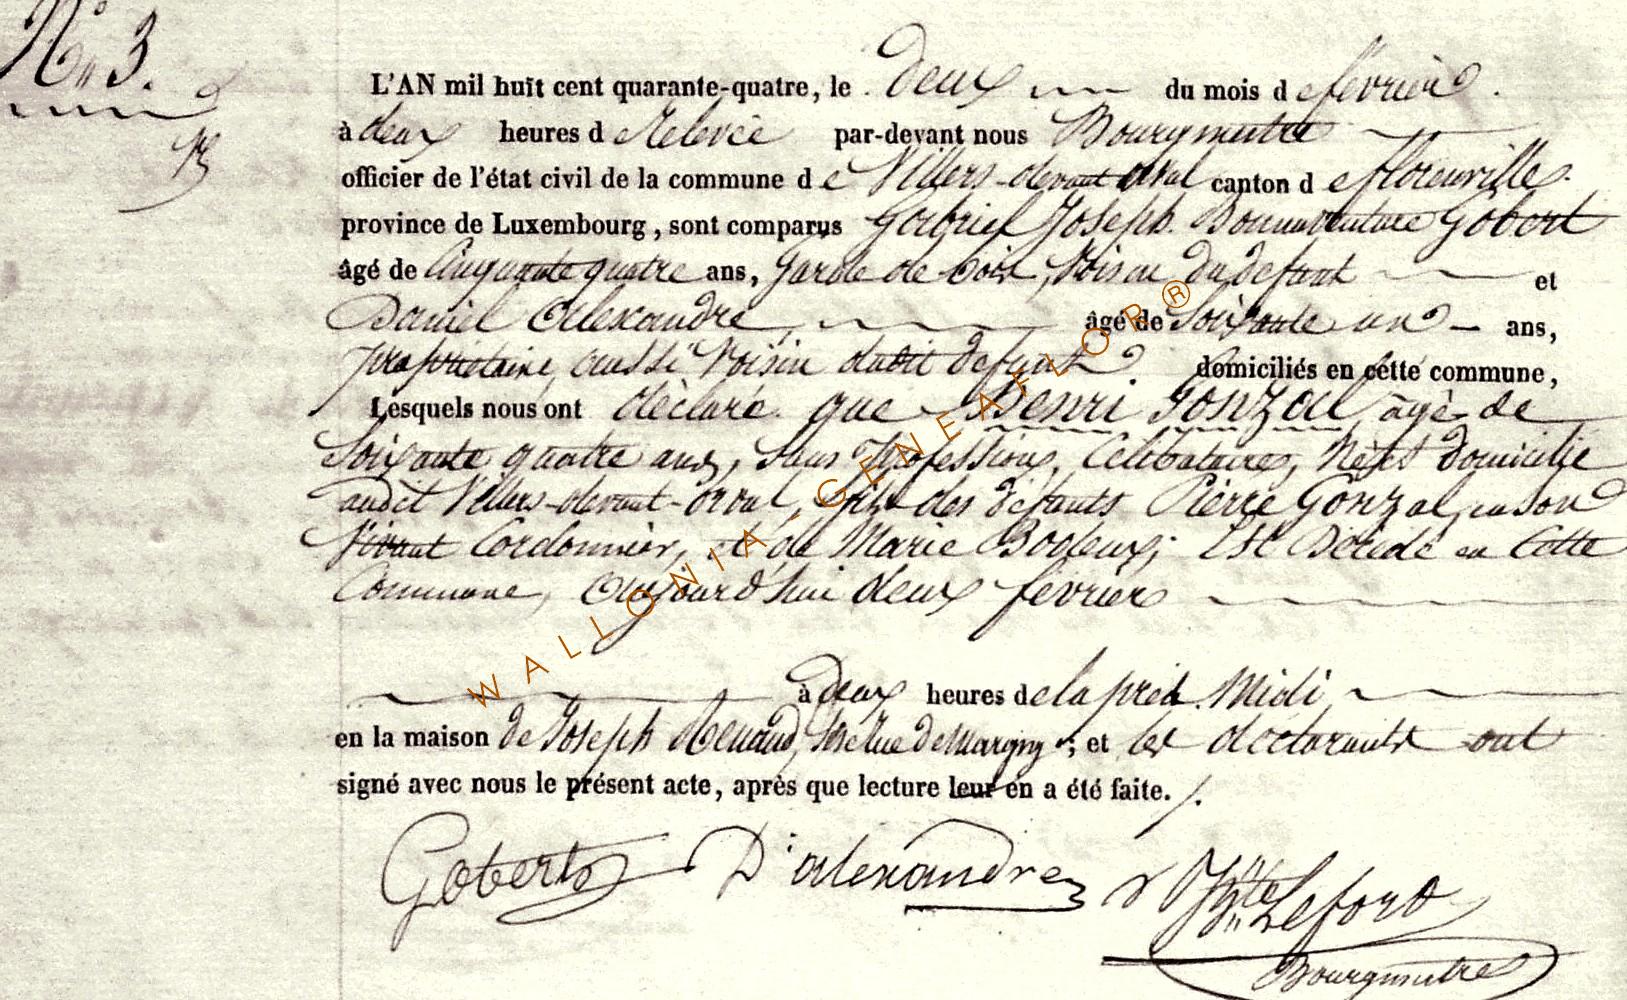 N° 3.
L'AN mil huit cent quarante-quatre, le deux du mois de février.
à deux heures de Relevée par-devant nous Bourgmestre
officier de l'état civil de la commune de Villers-devant orval canton de florenville.
province de Luxembourg, sont comparus Gabriel Joseph Bonnaventure Gobert
âgé de Cinquante quatre ans, garde de bois, Voisin du défunt et
Daniel Allexandre, âgé de Soixante un ans,
propriétaire, aussi Voisin dudit défunt domiciliés en cette commune,
Lesquels nous ont déclaré que Henri Gonzal, âgé de
Soixante quatre ans, Sans Profession, Célibataire, Né et domicilié
audit Villers-devant-orval, fils des défunts Pierre Gonzal, en son
Vivant Cordonnier, et de Marie Bodeux; Est Décédé en Cette
Commune, Aujourd'hui deux février
à deux heures de la prèd Midi
en la maison de Joseph Renaud, rue de Margny; et les déclarants ont
signé avec nous le présent acte, après que lecture leur en a été faite.
Gobert D'alexandre Lefort
Bourgmestre
WALLONIA GENEAFLOR ®